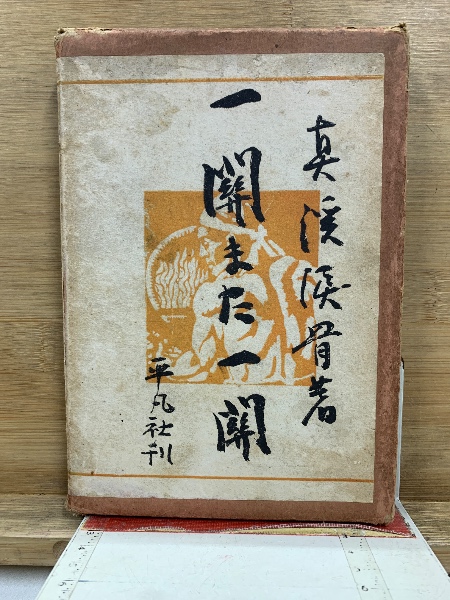 真渓涙骨著
一關また一關
平凡社刊